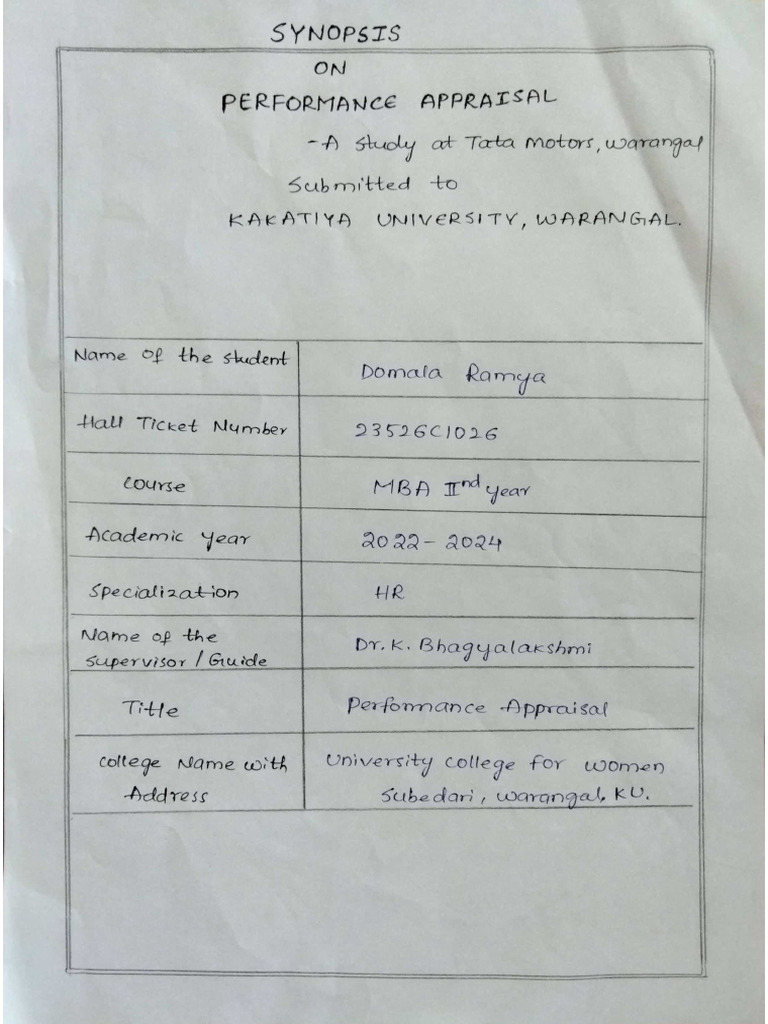 SYNOPSIS
ON
PERFORMANCE APPRAISAL
- A study at Tata Motors, Warangal
Submitted to
KAKATIYA UNIVERSITY, WARANGAL.
Name of the student
Domala Ramya
Hall Ticket Number
23526C1026
Course
MBA IInd year
Academic year
2022 - 2024
Specialization
HR
Name of the
Supervisor / Guide
Dr. K. Bhagyalakshmi
Title
Performance Appraisal
College Name with
Address
University college for women
Subedari, Warangal, KU.